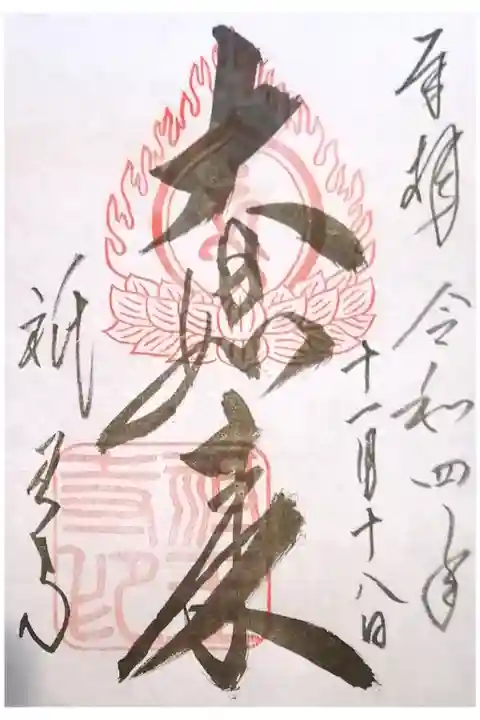 奉拝 令和四年
十一月十八日
大日如来
祇 寺